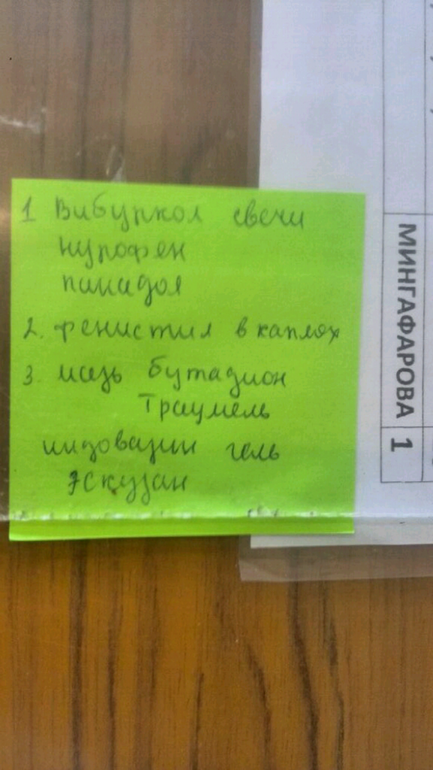 1 Вибуркол свечи
нурофен
панадол
2. фенистил в каплях
3. мазь бутадион
Траумель
индовазин гель
Эскузан
МИНГАФАРОВА 1